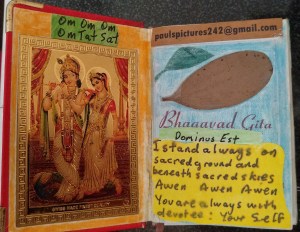 Om Om Om
Om Tat Sat
paulspictures242@gmail.com
Bhagavad Gita
Dominus Est
I stand always on
sacred ground and
beneath sacred skies
Awen Awen Awen
You are always with
devotee: Your Self